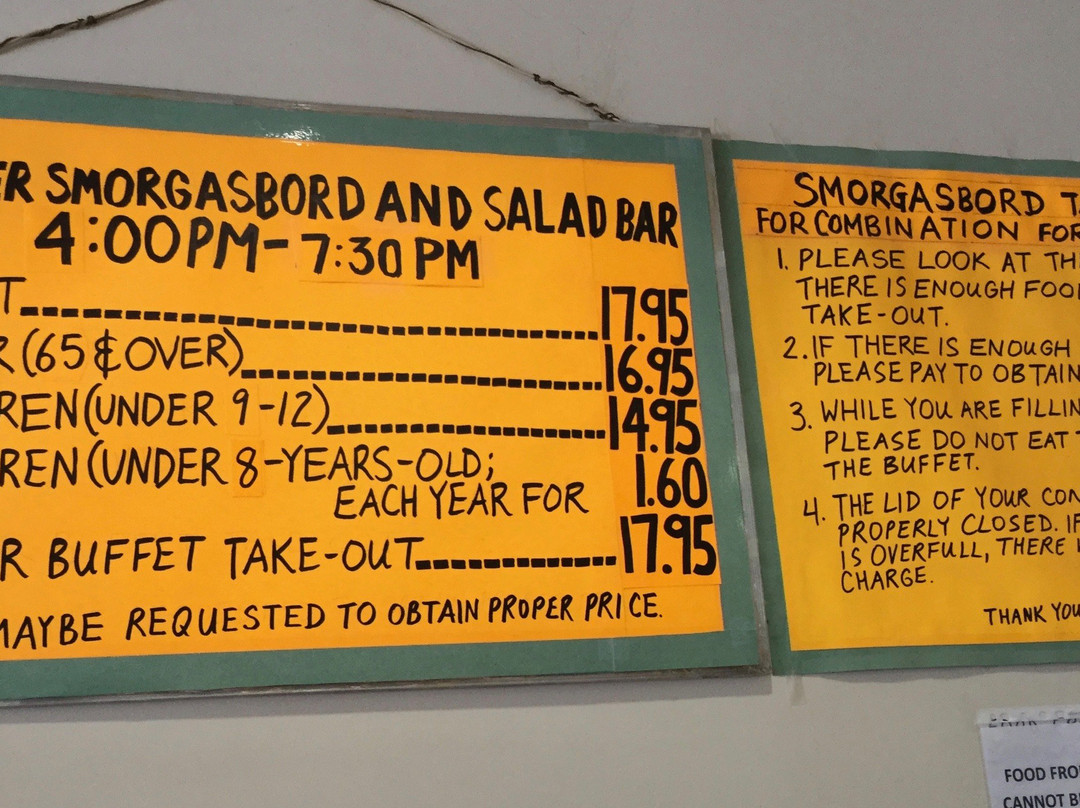 ER SMORGASBORD AND SALAD BAR
4:00PM-7:30 PM
T 17.95
R (65 & OVER) 16.95
REN (UNDER 9-12) 14.95
REN (UNDER 8-YEARS-OLD;
EACH YEAR FOR 1.60
R BUFFET TAKE-OUT 17.95
MAYBE REQUESTED TO OBTAIN PROPER PRICE.
SMORGASBORD T
FOR COMBINATION FOR
1. PLEASE LOOK AT TH
THERE IS ENOUGH FOO
TAKE-OUT.
2. IF THERE IS ENOUGH
PLEASE PAY TO OBTAIN
3. WHILE YOU ARE FILLIN
PLEASE DO NOT EAT
THE BUFFET.
4. THE LID OF YOUR CON
PROPERLY CLOSED. IF
IS OVERFULL, THERE
CHARGE.
THANK YOU
FOOD FRO
CANNOT B